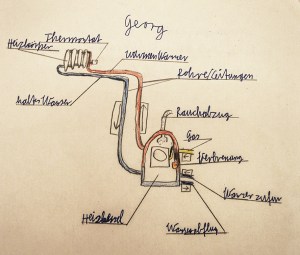 Georg
Thermostat
Heizkörper
warmes Wasser
Rohre/Leitungen
kaltes Wasser
Rauchabzug
Gas
Verbrennung
Wasser zufuhr
Heizkessel
Wasserabflug